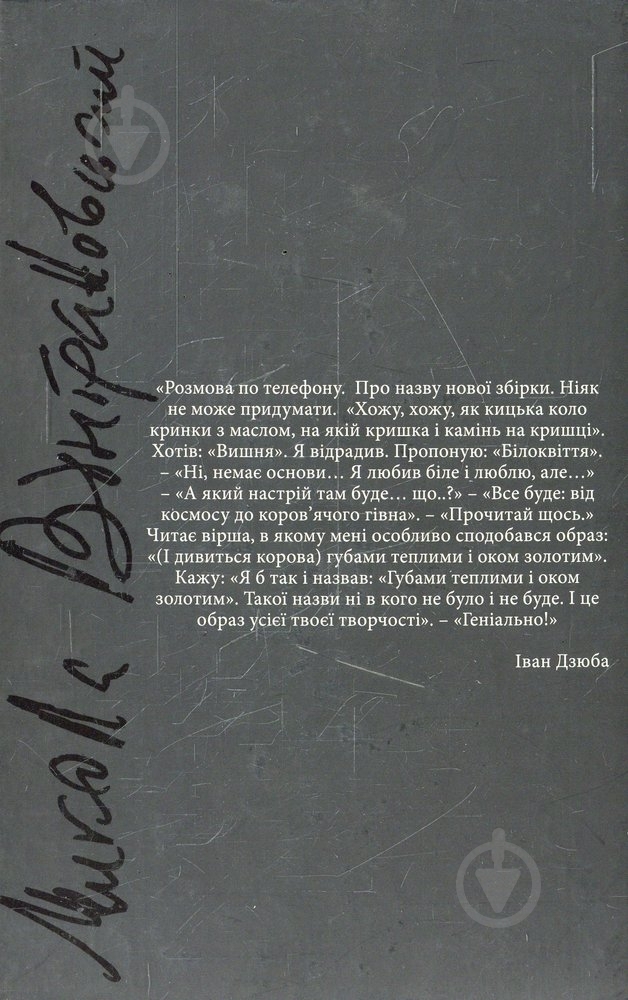 Микола Вінграновський
«Розмова по телефону. Про назву нової збірки. Ніяк
не може придумати. «Хожу, хожу, як кицька коло
кринки з маслом, на якій кришка і камінь на кришці».
Хотів: «Вишня». Я відрадив. Пропоную: «Білоквіття».
– «Ні, немає основи… Я любив біле і люблю, але…»
– «А який настрій там буде… що..?» – «Все буде: від
космосу до коров’ячого гівна». – «Прочитай щось.»
Читає вірша, в якому мені особливо сподобався образ:
«(І дивиться корова) губами теплими і оком золотим».
Кажу: «Я б так і назвав: «Губами теплими і оком
золотим». Такої назви ні в кого не було і не буде. І це
образ усієї твоєї творчості». – «Геніально!»
Іван Дзюба